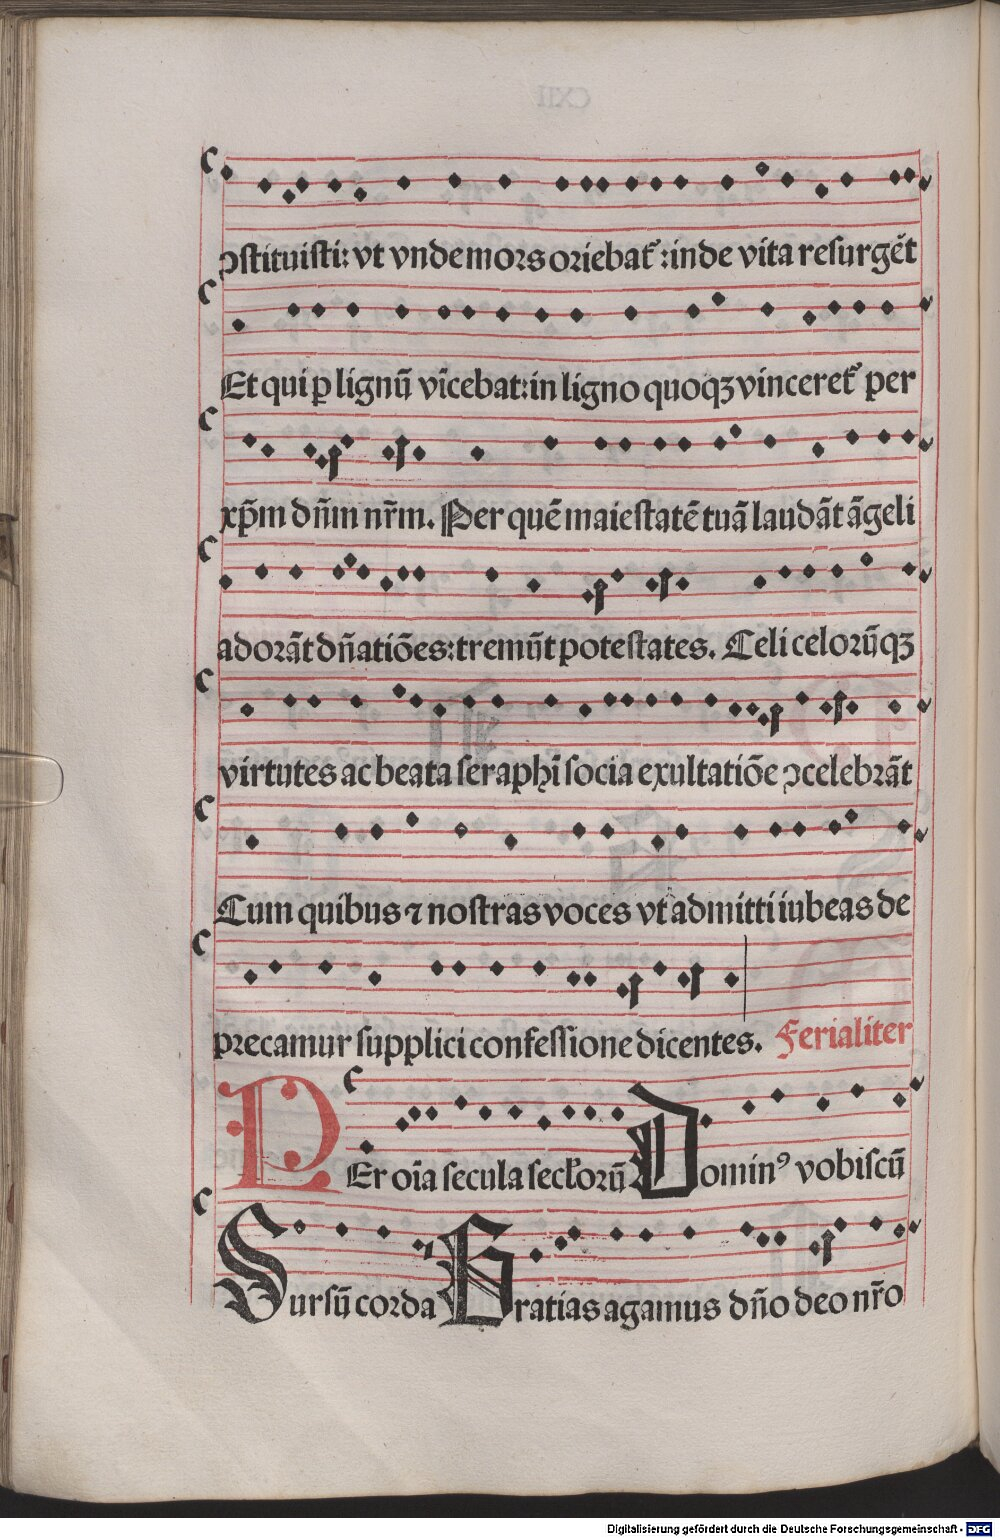 ↄstituisti: vt vnde mors oriebat᷑: inde vita resurgēt
Et qui ꝑ lignū vīcebat: in ligno quoqꝫ vinceret᷑ per
xp̄m dn̄m nr̄m. Per quē maiestatē tuā laudāt āgeli
adorāt dn̄atiōes: tremūt potestates. Celi celorūqꝫ
virtutes ac beata seraphī socia exultatiōe ↄcelebrāt
Cum quibus ⁊ nostras voces vt admitti iubeas de
precamur supplici confessione dicentes. Ferialiter
PEr oīa secula seclꝛoꝛū Dominꝰ vobiscū
Sursū corda Gratias agamus dn̄o deo nr̄o
Digitalisierung gefördert durch die Deutsche Forschungsgemeinschaft - DFG